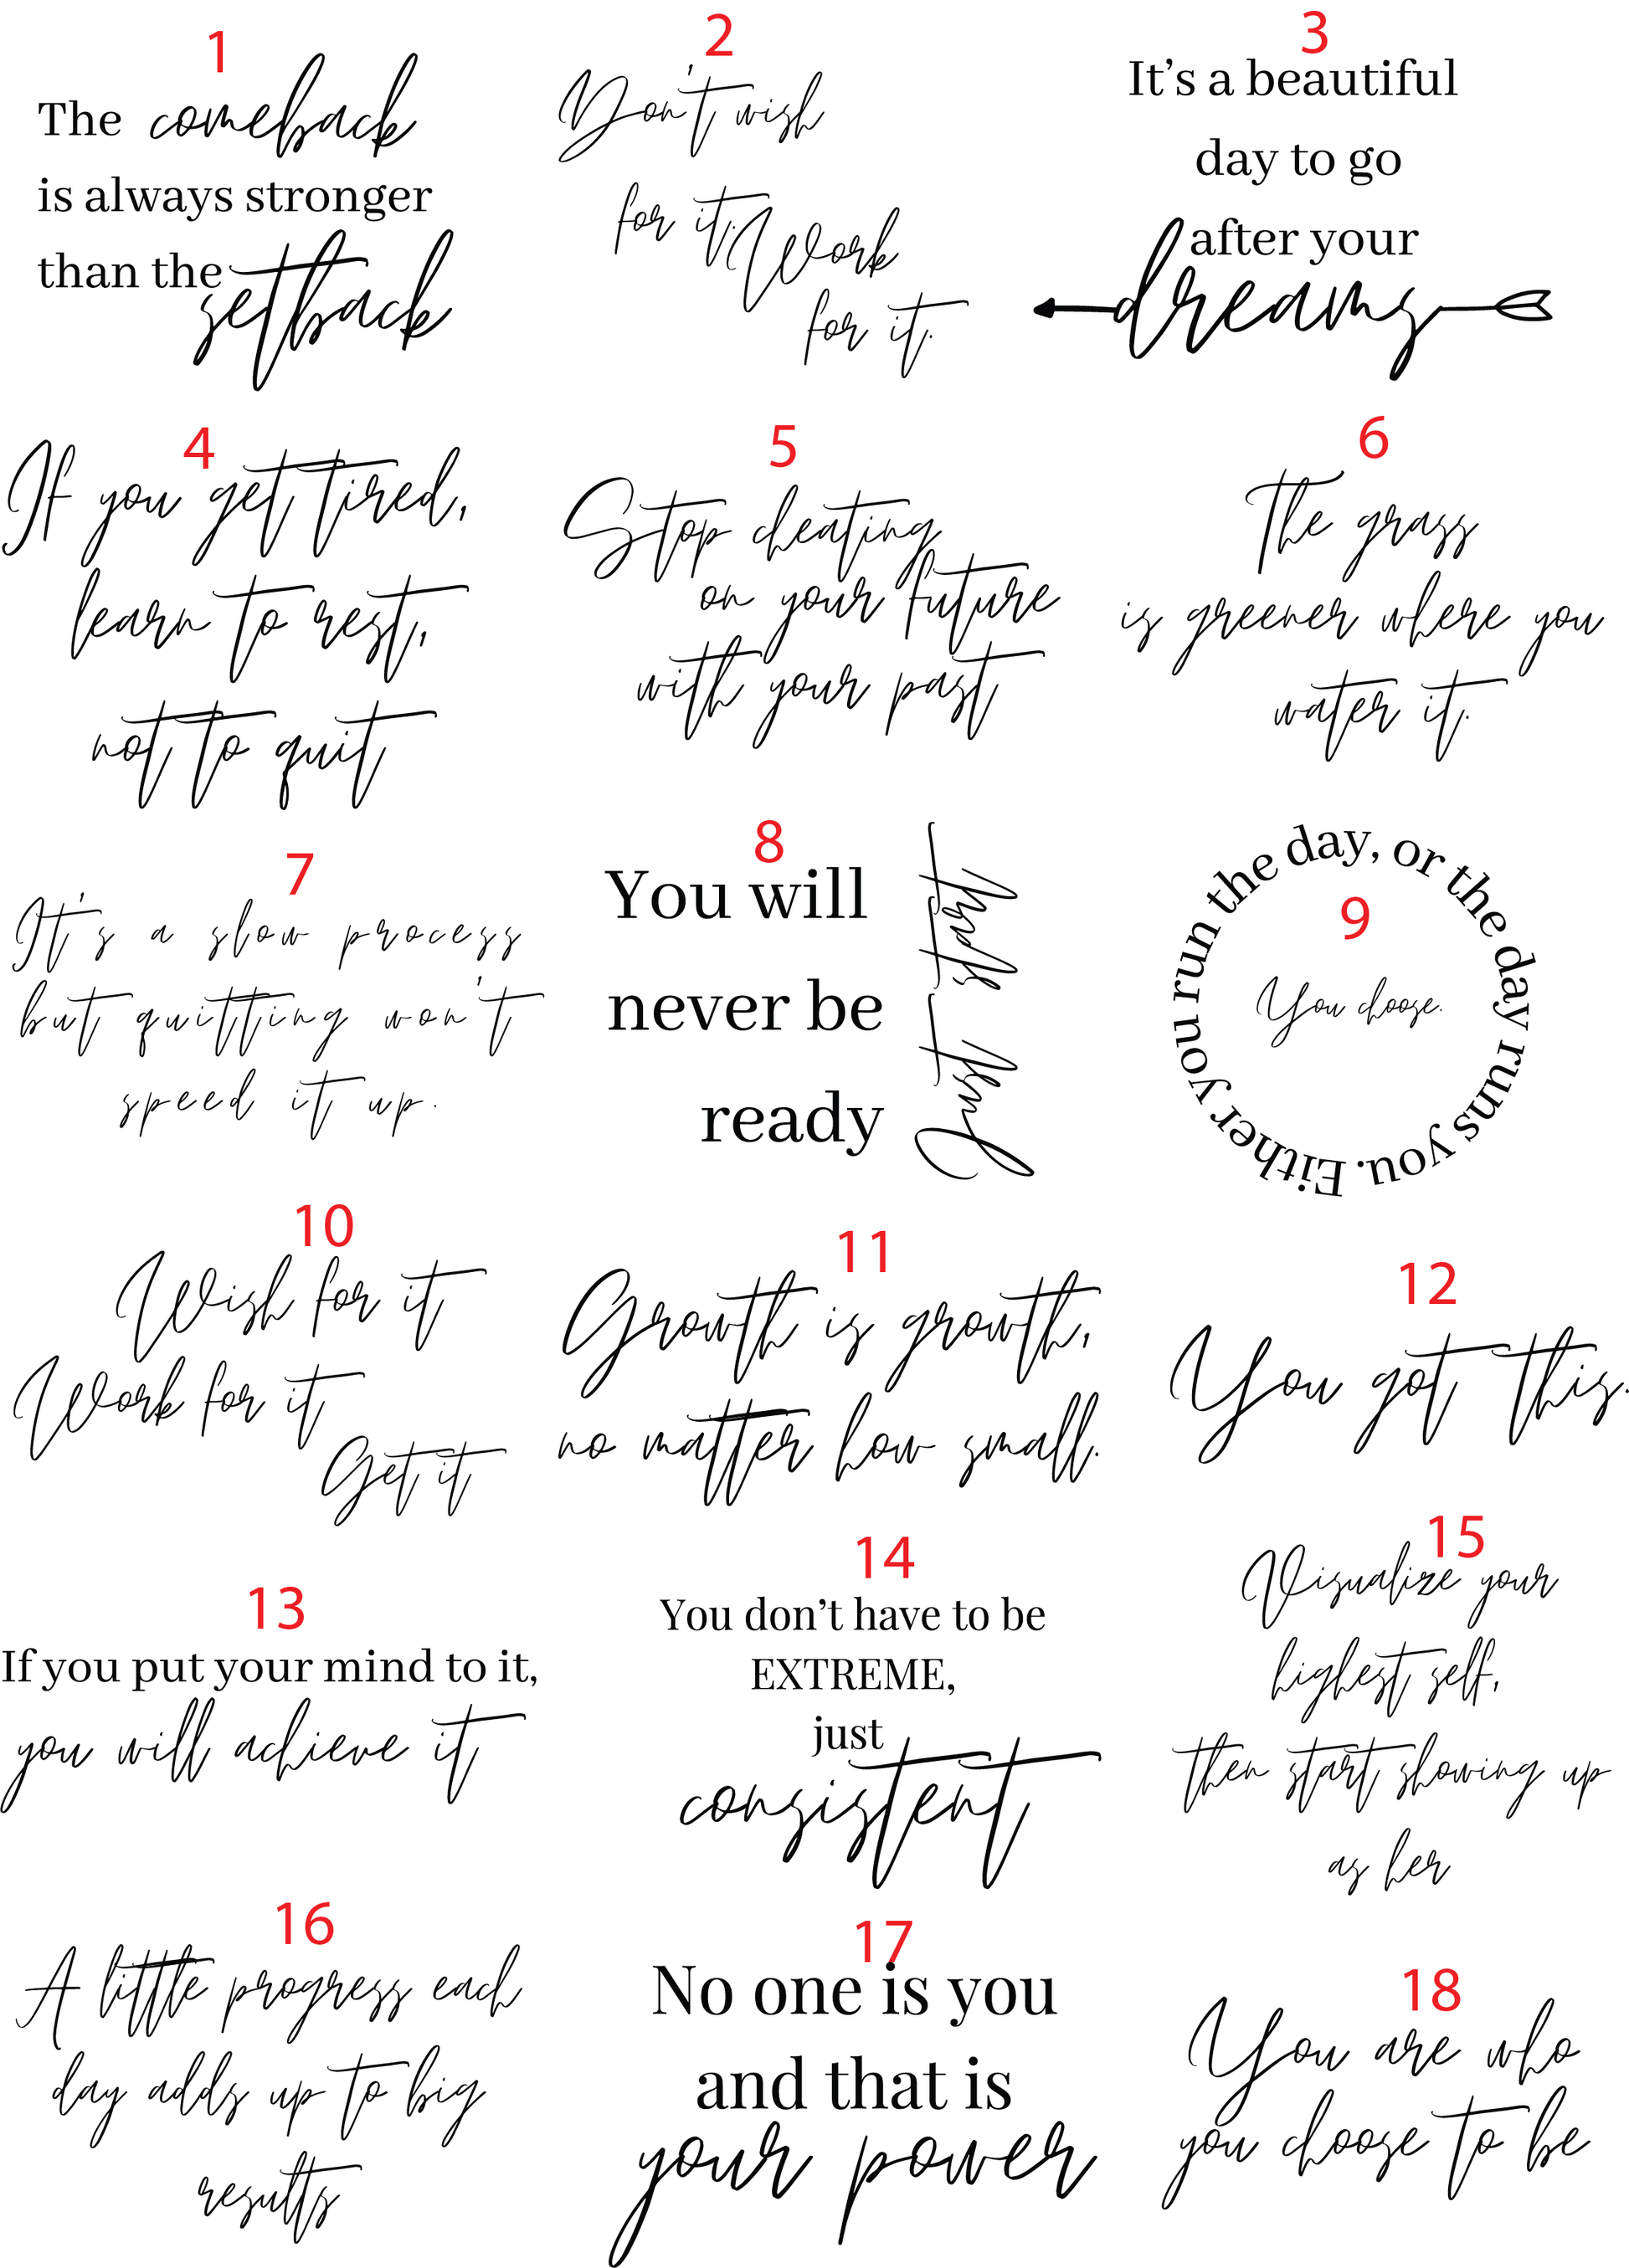 1
The comeback
is always stronger
than the
setback
2
Don't wish
for it. Work
for it.
3
It's a beautiful
day to go
after your
dreams
4
If you get tired,
learn to rest,
not to quit
5
Stop cheating
on your future
with your past
6
The grass
is greener where you
water it.
7
It's a slow process
but quitting won't
speed it up.
8
You will
never be
ready
Just start
9
Either you run the day, or the day runs you.
You choose.
10
Wish for it
Work for it
Get it
11
Growth is growth,
no matter how small.
12
You got this.
13
If you put your mind to it,
you will achieve it
14
You don't have to be
EXTREME,
just
consistent
15
Visualize your
highest self,
then start showing up
as her
16
A little progress each
day adds up to big
results
17
No one is you
and that is
your power
18
You are who
you choose to be